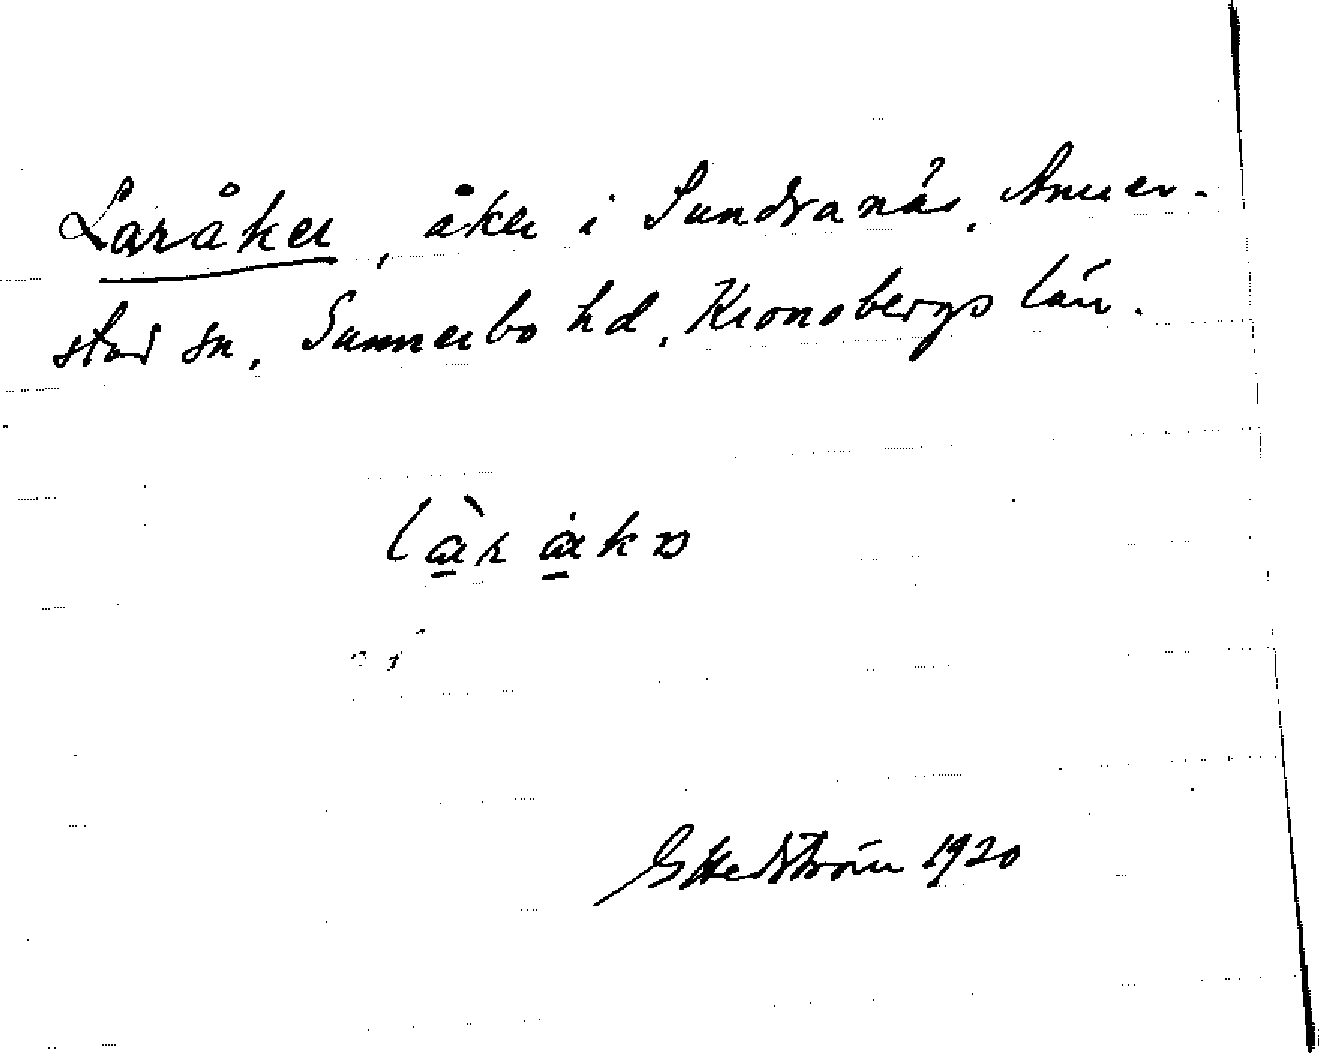 Laråker, åker i Sundranäs, Anner-
stad sn, Sunnerbo hd, Kronobergs län.
là̱r å̱kɷ
G Hedström 1920